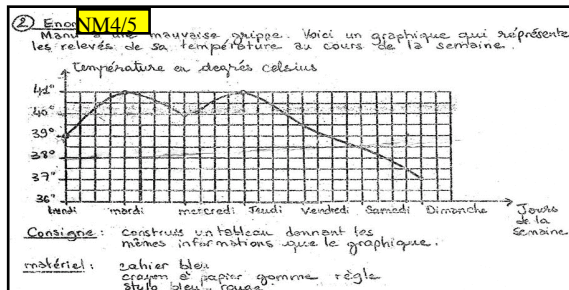 ② Enon NM4/5
Manu a une mauvaise grippe. Voici un graphique qui représente
les relevés de sa température au cours de la semaine.
Température en degrés celsius
41°
40°
39°
38°
37°
36°
lundi mardi mercredi Jeudi Vendredi Samedi Dimanche Jours
de la
semaine
Consigne : construis un tableau donnant les
mêmes informations que le graphique.
matériel : cahier bleu
crayon à papier gomme règle
stylo bleu rouge